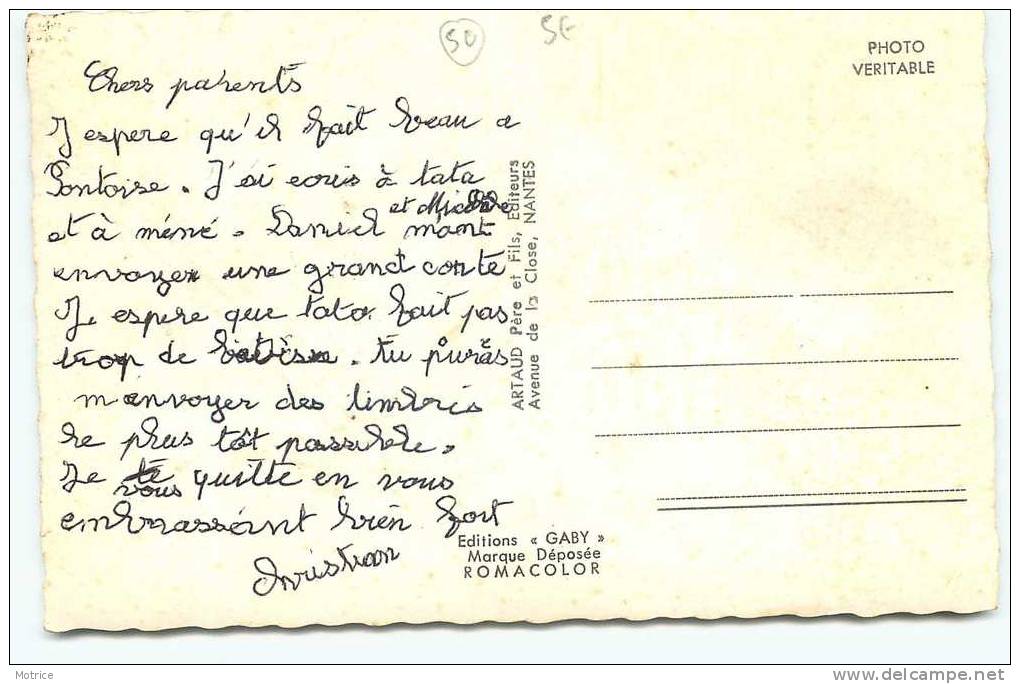 50
SE
PHOTO
VERITABLE
Chers parents
J espere qu'il fait beau a
Pontoise. J'ai ecris à tata
et à méné. Daniel et Michèle m'ont
envoyer une grand carte
Je espere que tata fait pas
trop de bêtise. tu pouras
m envoyer des timbres
le plus tôt possible.
Je vous quitte en vous
embrassant bien fort
Christian
ARTAUD Père et Fils, Editeurs
Avenue de la Close, NANTES
Editions « GABY »
Marque Déposée
ROMACOLOR
Motrice
www.delcampe.net